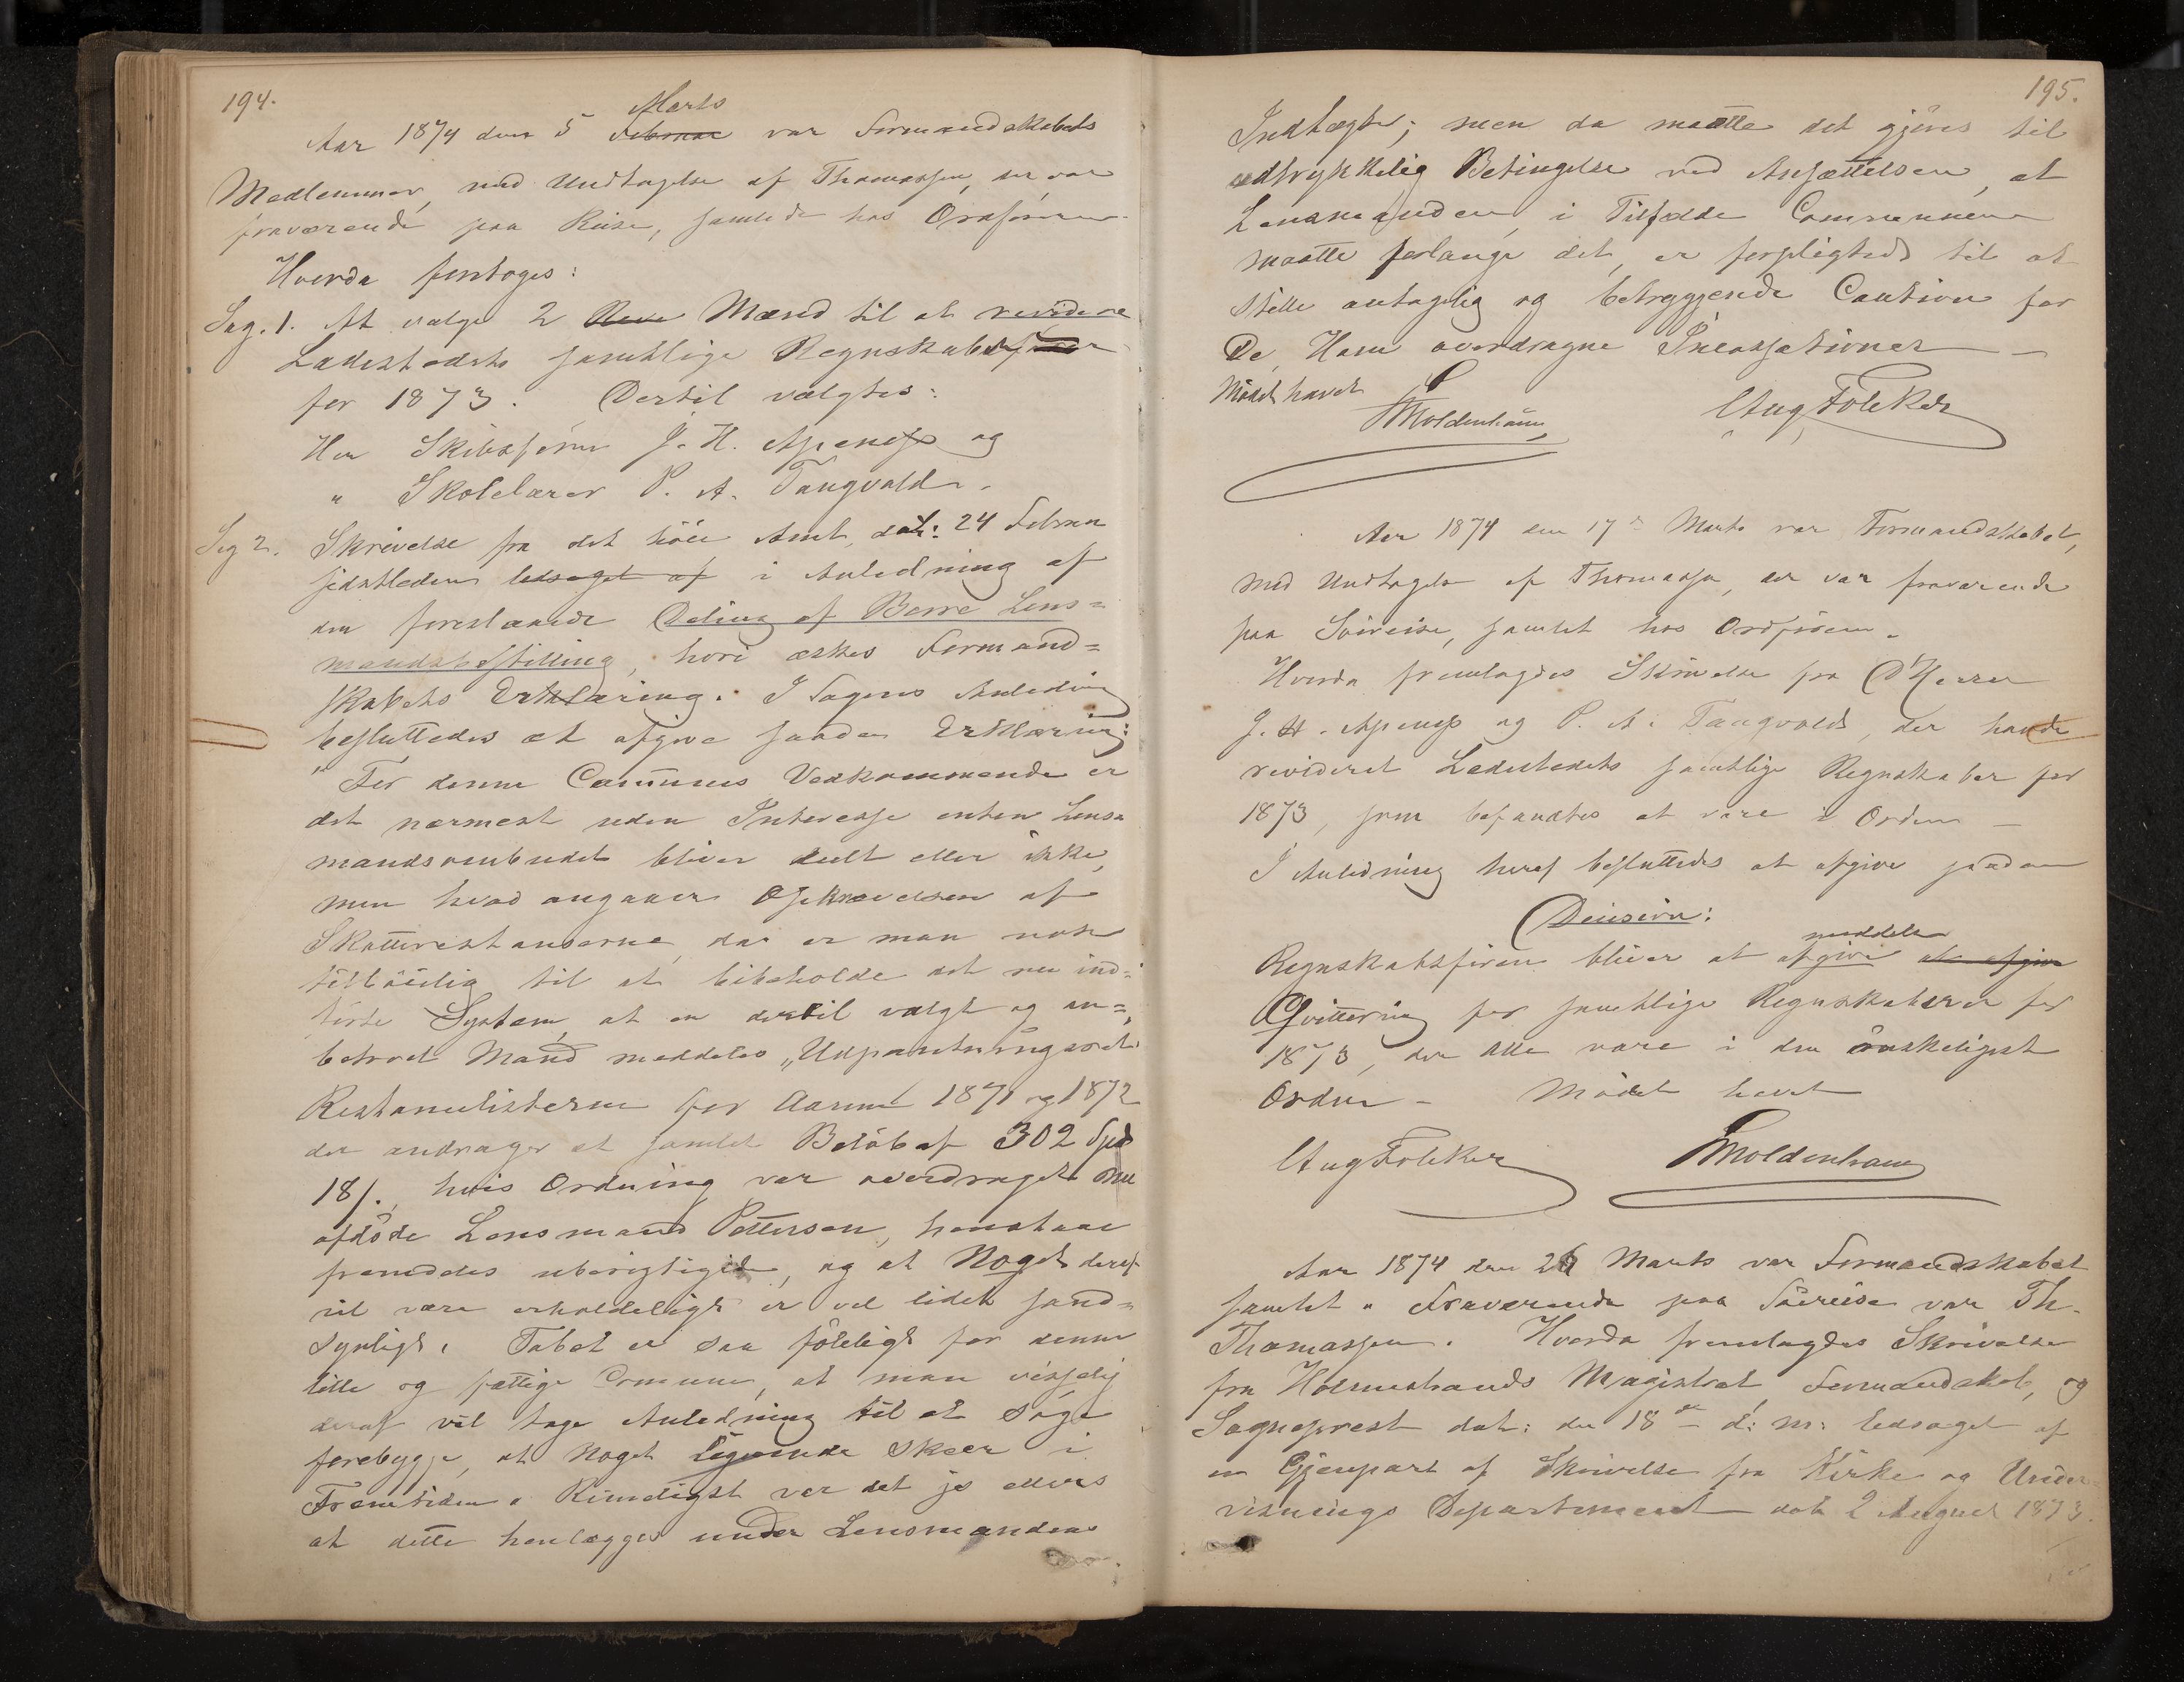 194.
Marts
Aar 1874 den 5 Februar var Formandskabets
Medlemmer, med Undtagelse af Thomassen, der var
fraværende paa Reise, samlede hos Ordføreren.
Hvorda foretoges:
Sag. 1. At vælge 2 Mænd til at revidere
Ladestedets samtlige Regnskaber
for 1873. Dertil valgtes:
Herr Skibsfører J. H. Apenes og
" Skolelærer P. A. Tangvald.
Sag 2. Skrivelse fra det höie Amt, dat: 24 Februar
sidstleden ledsaget af i Anledning af
den foreslaaede Deling af Borre Lens=
mandsbestilling, hvori æskes Formand=
skabets Erklæring. I Sagens Anledning
besluttedes at afgive saadan Erklæring:
"For denne Communes Vedkommende er
det nærmest uden Interesse enten Lens=
mandsombudet bliver deelt eller ikke,
men hvad angaaer Opkrævelsen af
Skatterestanserne, da er man
tilböielig til at bibeholde det nu ind=
förte System, at en dertil valgt og an=
betroet Mand meddeles „Udpantningsret
Restancelisterne for Aarene 1871 og 1872
der andrager et samlet Belöb af 302 Spd
18 s., hvis Ordning var overdraget nu
afdöde Lensmand Pettersen, henstaae
fremdeles uberigtiget, og at Noget deraf
vil være erholdeligt er vel lidet sand=
synligt. Tabet er saa föleligt for denne
lille og fattige Commune, at man visselig
deraf vil tage Anledning til at söge
forebygge, at Noget lignende skeer i
Fremtiden. Rimeligst var det jo ellers
at dette henlægges under Lensmandens
195.
Indtægter; men da maatte det gjöres til
udtrykkelig Betingelse ved Ansættelsen, at
Lensmanden, i Tilfælde Communen
maatte forlange det, er forpligtet til at
stille antagelig og betryggende Caution for
De Ham overdragne Incassationer —
Mödet hævet
Moldenhauer Aug Fölcker
Aar 1874 den 17de Marts var Formandskabet,
med Undtagelse af Thomassen, der var fraværende
paa Söireise, samlet hos Ordföreren.
Hvorda fremlagdes Skrivelse fra D'Herrer
J. H. Apenes og P. A. Tangvald, der havde
revideret Ladestedets samtlige Regnskaber for
1873, som befandtes at være i Orden —
I Anledning heraf besluttedes at afgive saadan
Decision:
meddele
Regnskabsföreren bliver at afgive at afgive
Qvittering for samtlige Regnskaber for
1873, der alle vare i den önskeligste
Orden — Mödet hævet
Aug Fölcker Moldenhauer
Aar 1874 den 26 Marts var Formandskabet
samlet. Fraværende paa Söereise var Th.
Thomassen. Hvorda fremlagdes Skrivelse
fra Holmestrands Magistrat, Formandskab, og
Sogneprest dat: den 18de d: m: ledsaget af
en Gjenpart af Skrivelse fra Kirke og Under=
visnings Departement dat 2 August 1873.